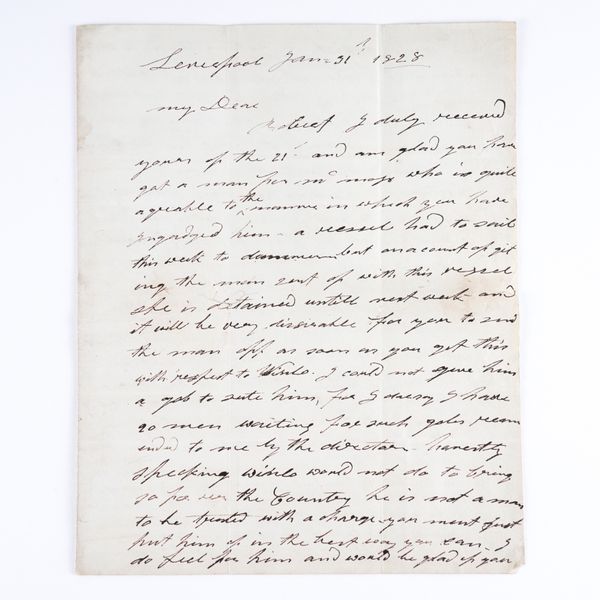 Leverpool Jan 31st 1828
my Dear
Robert I duly received
yours of the 21st and am glad you have
got a man for mr moss who is quite
agreable to the manner in which you have
engadged him - a vessel had to sail
this week to but on acount of git
ing the man sent of with this vessel
she is detained untill next week and
it will be very dissirable for you to send
the man off as soon as you get this
with respect to I could not give him
a gob to sute him, for I daresay I have
20 men waiting for such gobs recom
ended to me by the directors - honestly
speeking would not do to bring
so far over the Country he is not a man
to be trusted with a charge you must just
put him of in the best way you can - I
do feel for him and would be glad if you